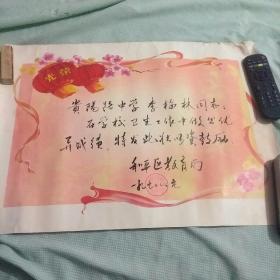 光荣
贵阳路中学李梅林同志：
在学校卫生工作中做出优
异成绩，特发此状以资鼓励
和平区教育局
一九七八、元